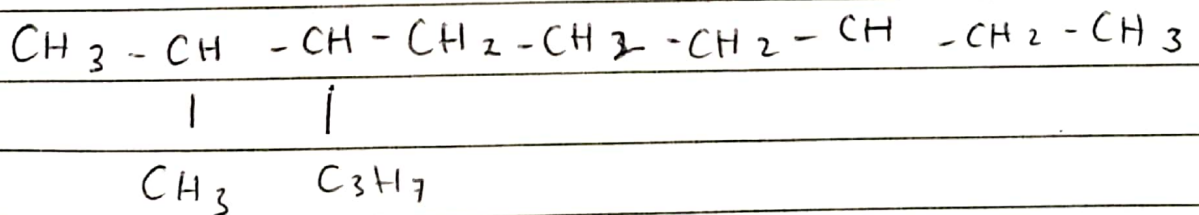 CH3 - CH - CH - CH2 - CH2 - CH2 - CH - CH2 - CH3
| |
CH3 C3H7